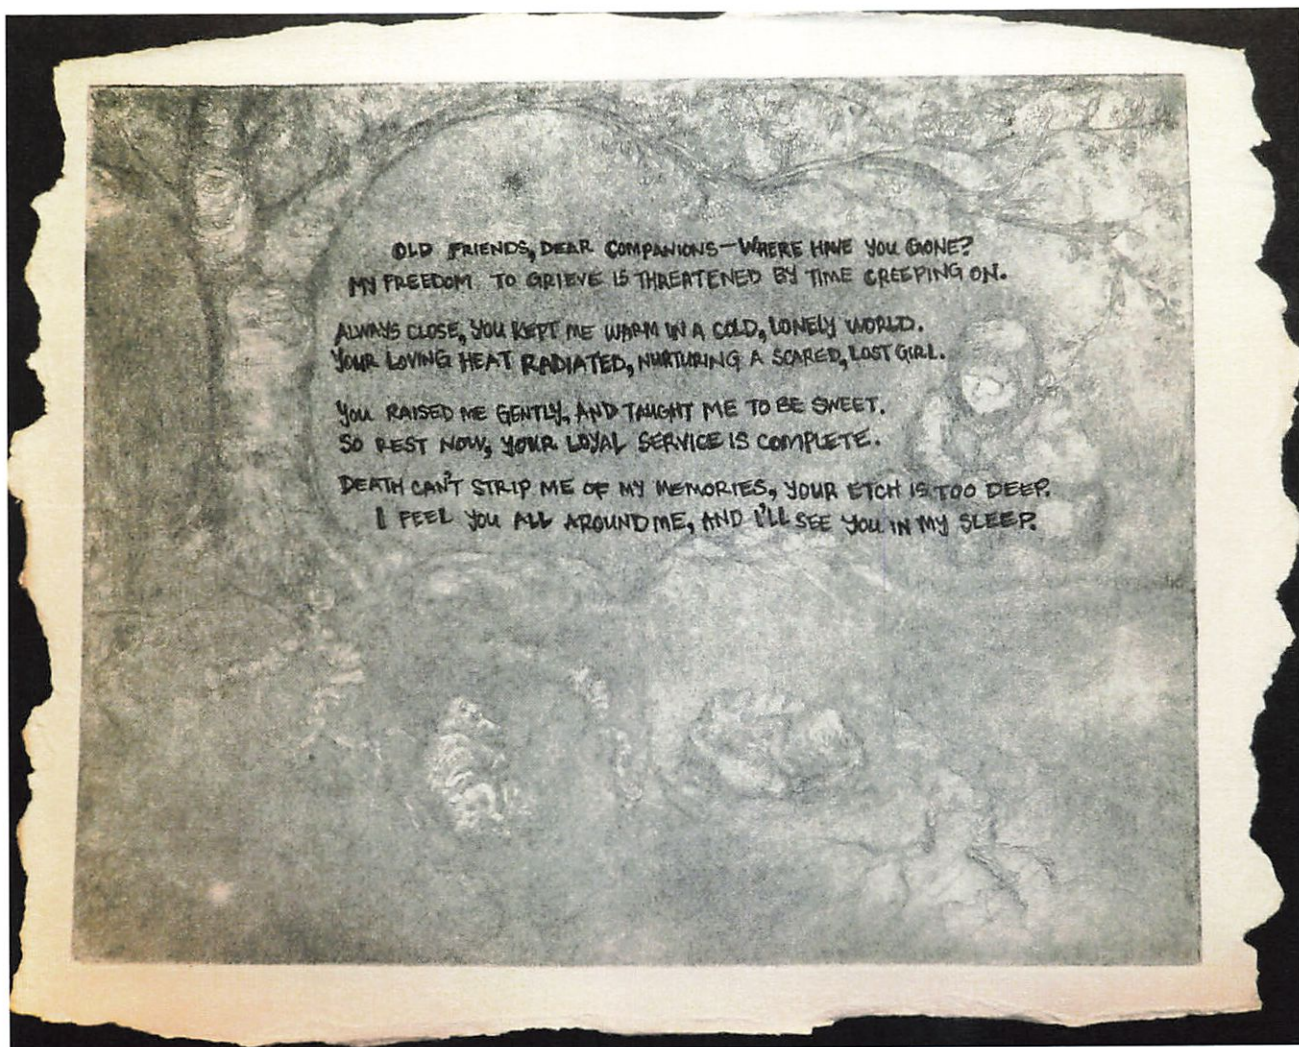 OLD FRIENDS, DEAR COMPANIONS—WHERE HAVE YOU GONE?
MY FREEDOM TO GRIEVE IS THREATENED BY TIME CREEPING ON.
ALWAYS CLOSE, YOU KEPT ME WARM IN A COLD, LONELY WORLD.
YOUR LOVING HEAT RADIATED, NURTURING A SCARED, LOST GIRL.
YOU RAISED ME GENTLY, AND TAUGHT ME TO BE SWEET.
SO REST NOW, YOUR LOYAL SERVICE IS COMPLETE.
DEATH CAN'T STRIP ME OF MY MEMORIES, YOUR ETCH IS TOO DEEP.
I FEEL YOU ALL AROUND ME, AND I'LL SEE YOU IN MY SLEEP.